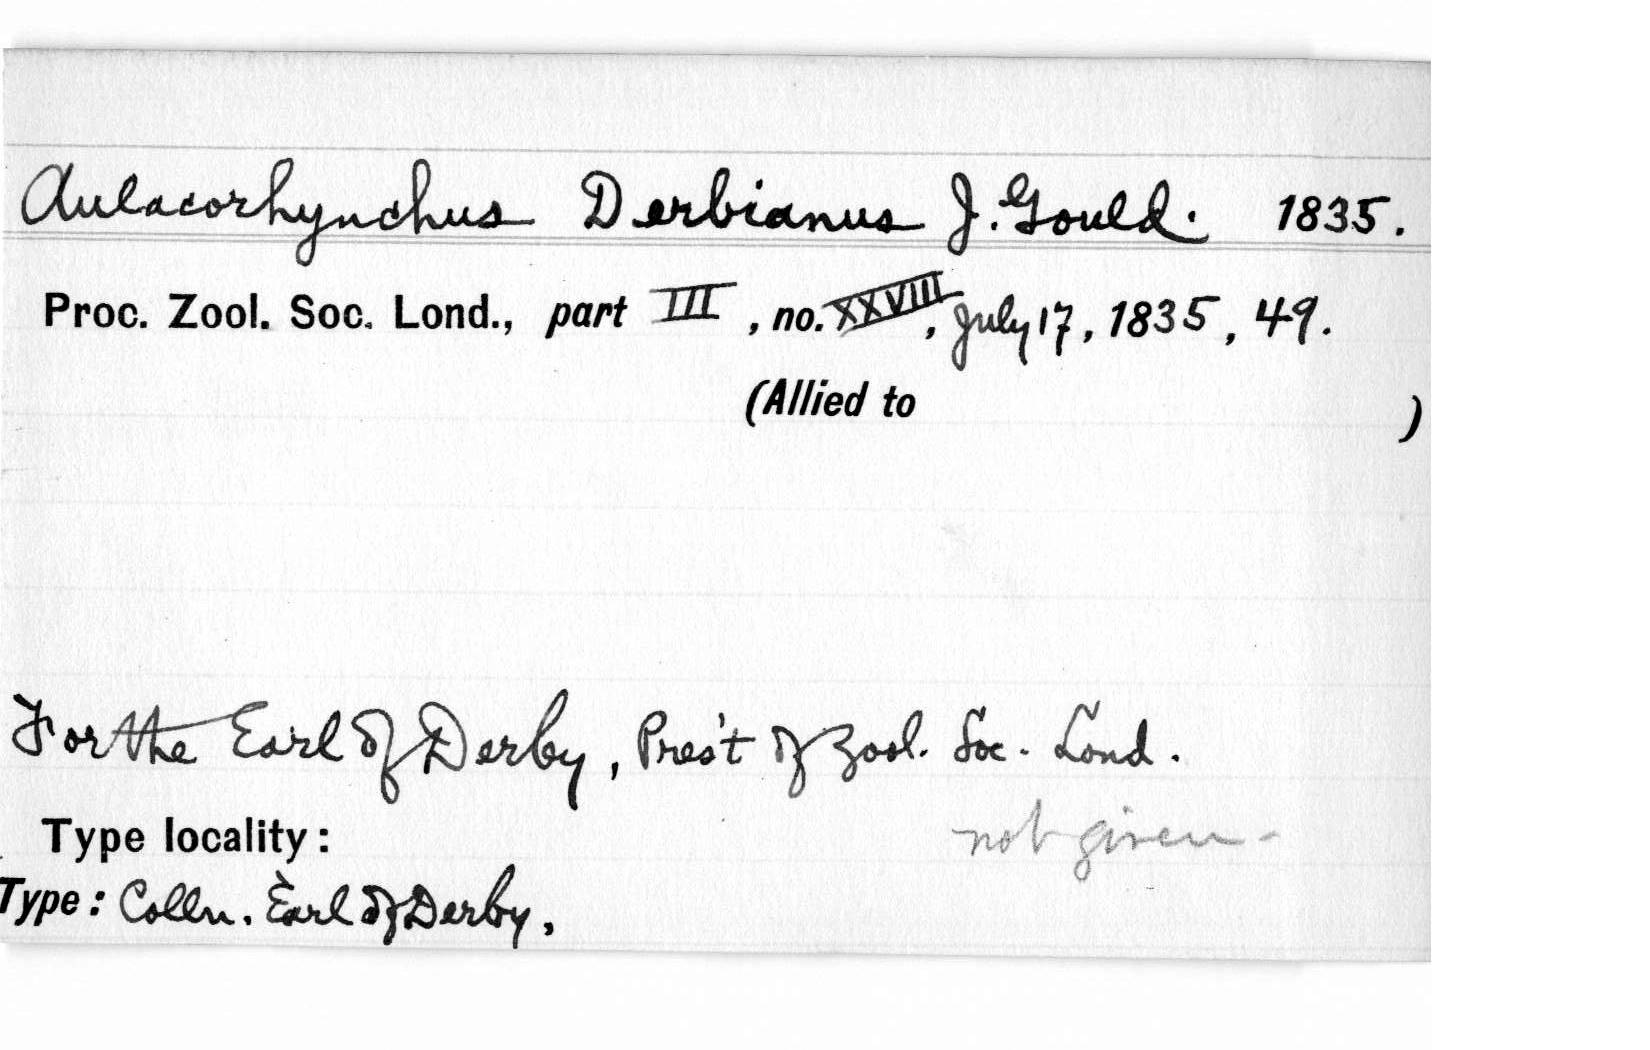 Aulacorhynchus Derbianus J. Gould. 1835.
Proc. Zool. Soc. Lond., part III, no. XXVIII, July 17, 1835, 49.
(Allied to )
For the Earl of Derby, Pres't of Zool. Soc. Lond.
Type locality: not given-
Type: Colln. Earl of Derby,